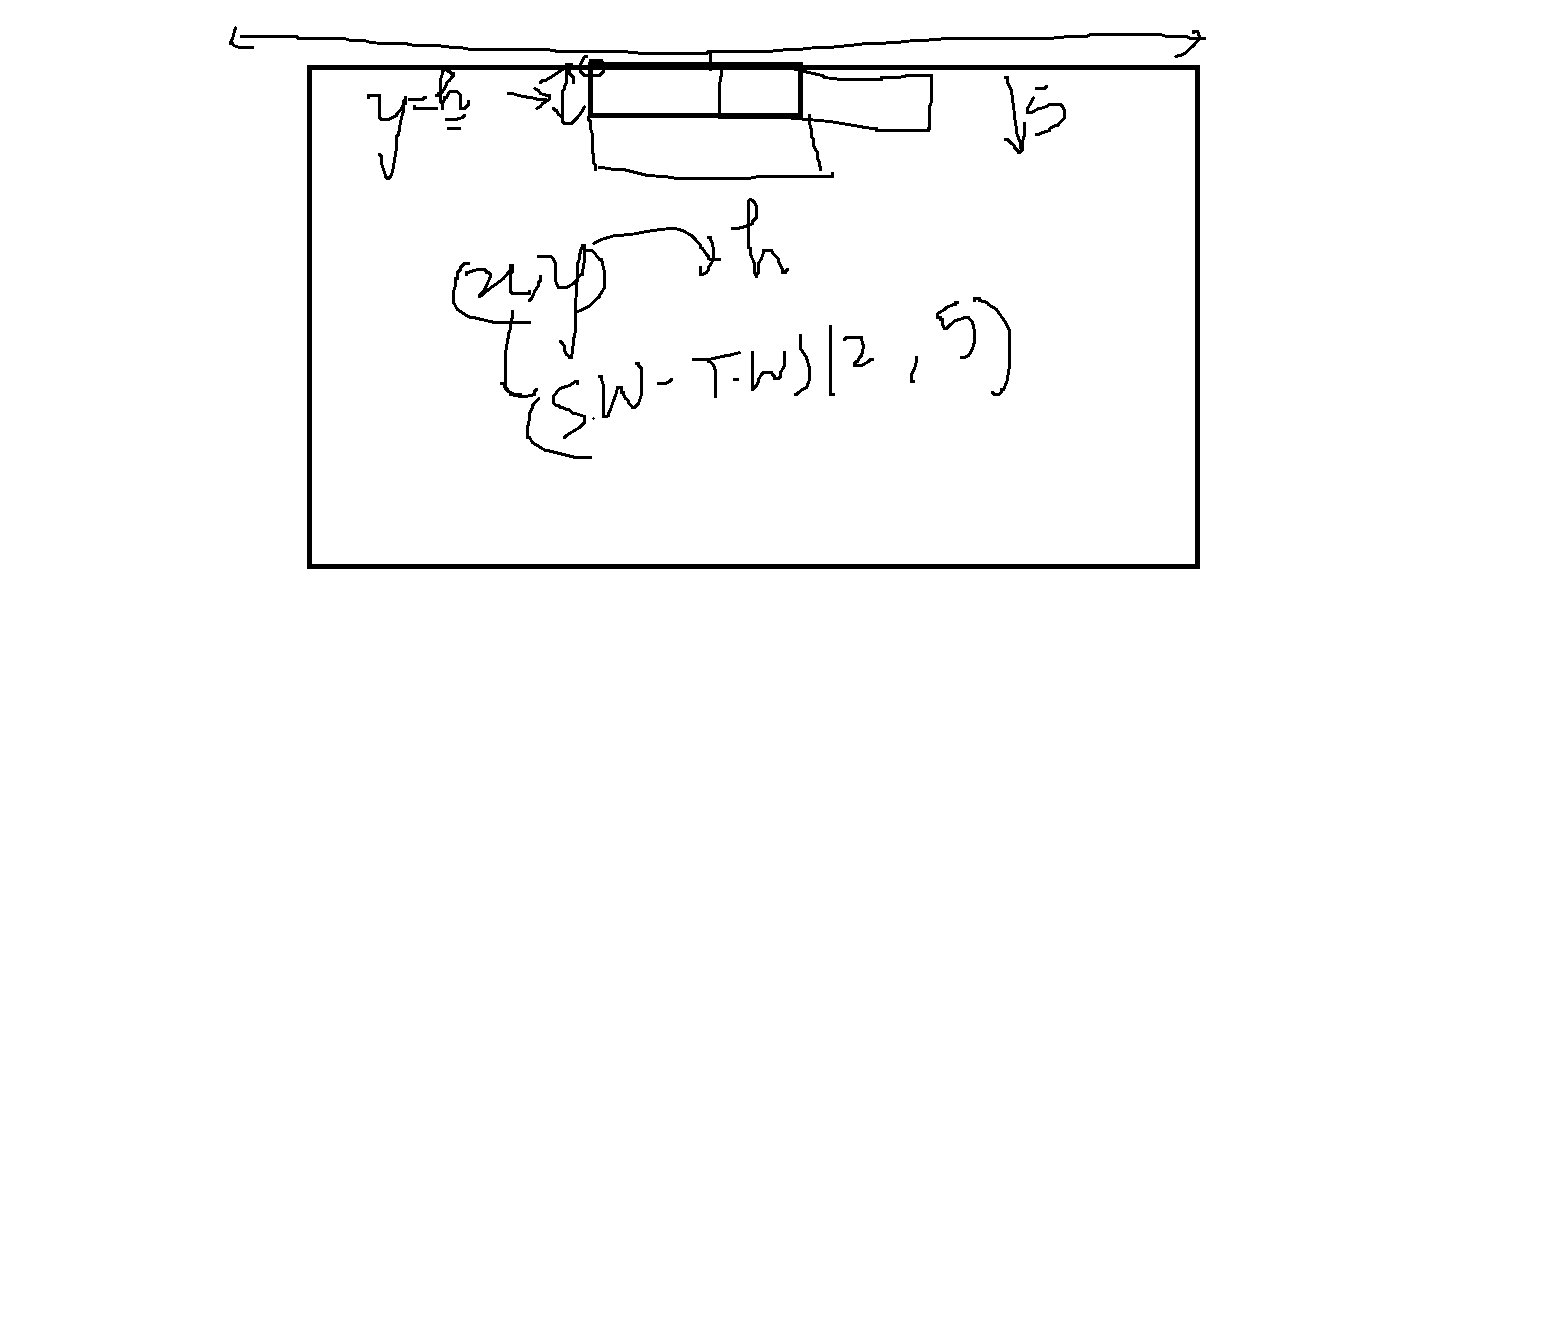 y=h
5
(x,y) h
(S.W - T.W)/2 , 5)